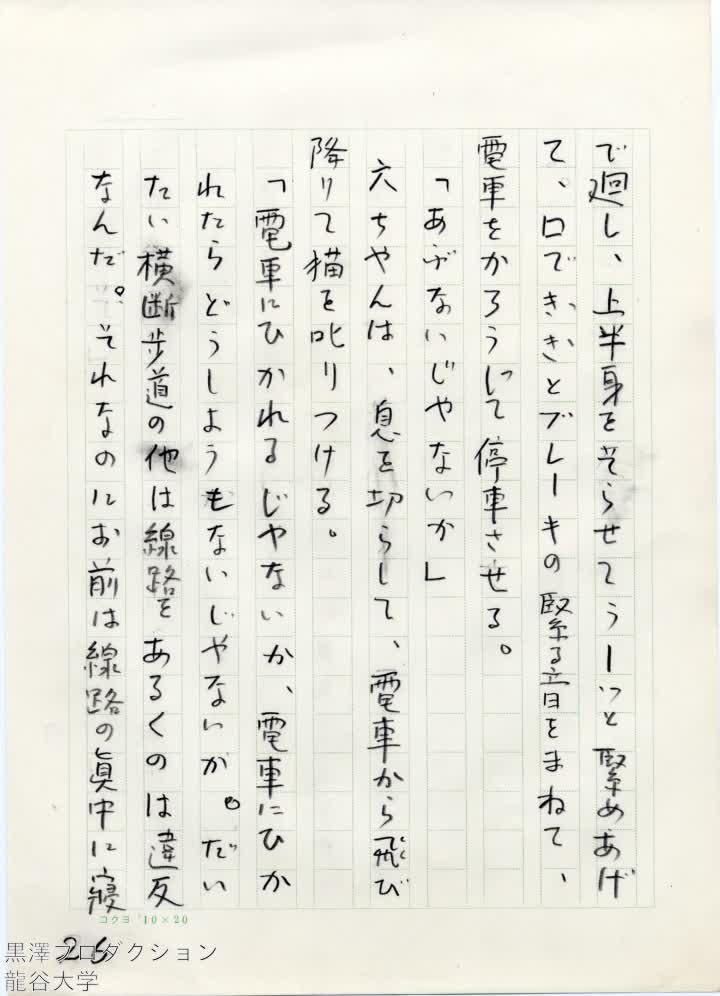 で廻し、上半身をそらせてうーッと緊めあげ
て、口できききとブレーキの緊る音をまねて、
電車をかろうじて停車させる。
「あぶないじやないか」
六ちやんは、息を切らして、電車から飛び
降りて猫を叱りつける。
「電車にひかれるじやないか、電車にひか
れたらどうしようもないじやないか。だい
たい横断歩道の他は線路をあるくのは違反
なんだ。それなのにお前は線路の眞中に寢
コクヨ 10×20
26
黒澤プロダクション
龍谷大学